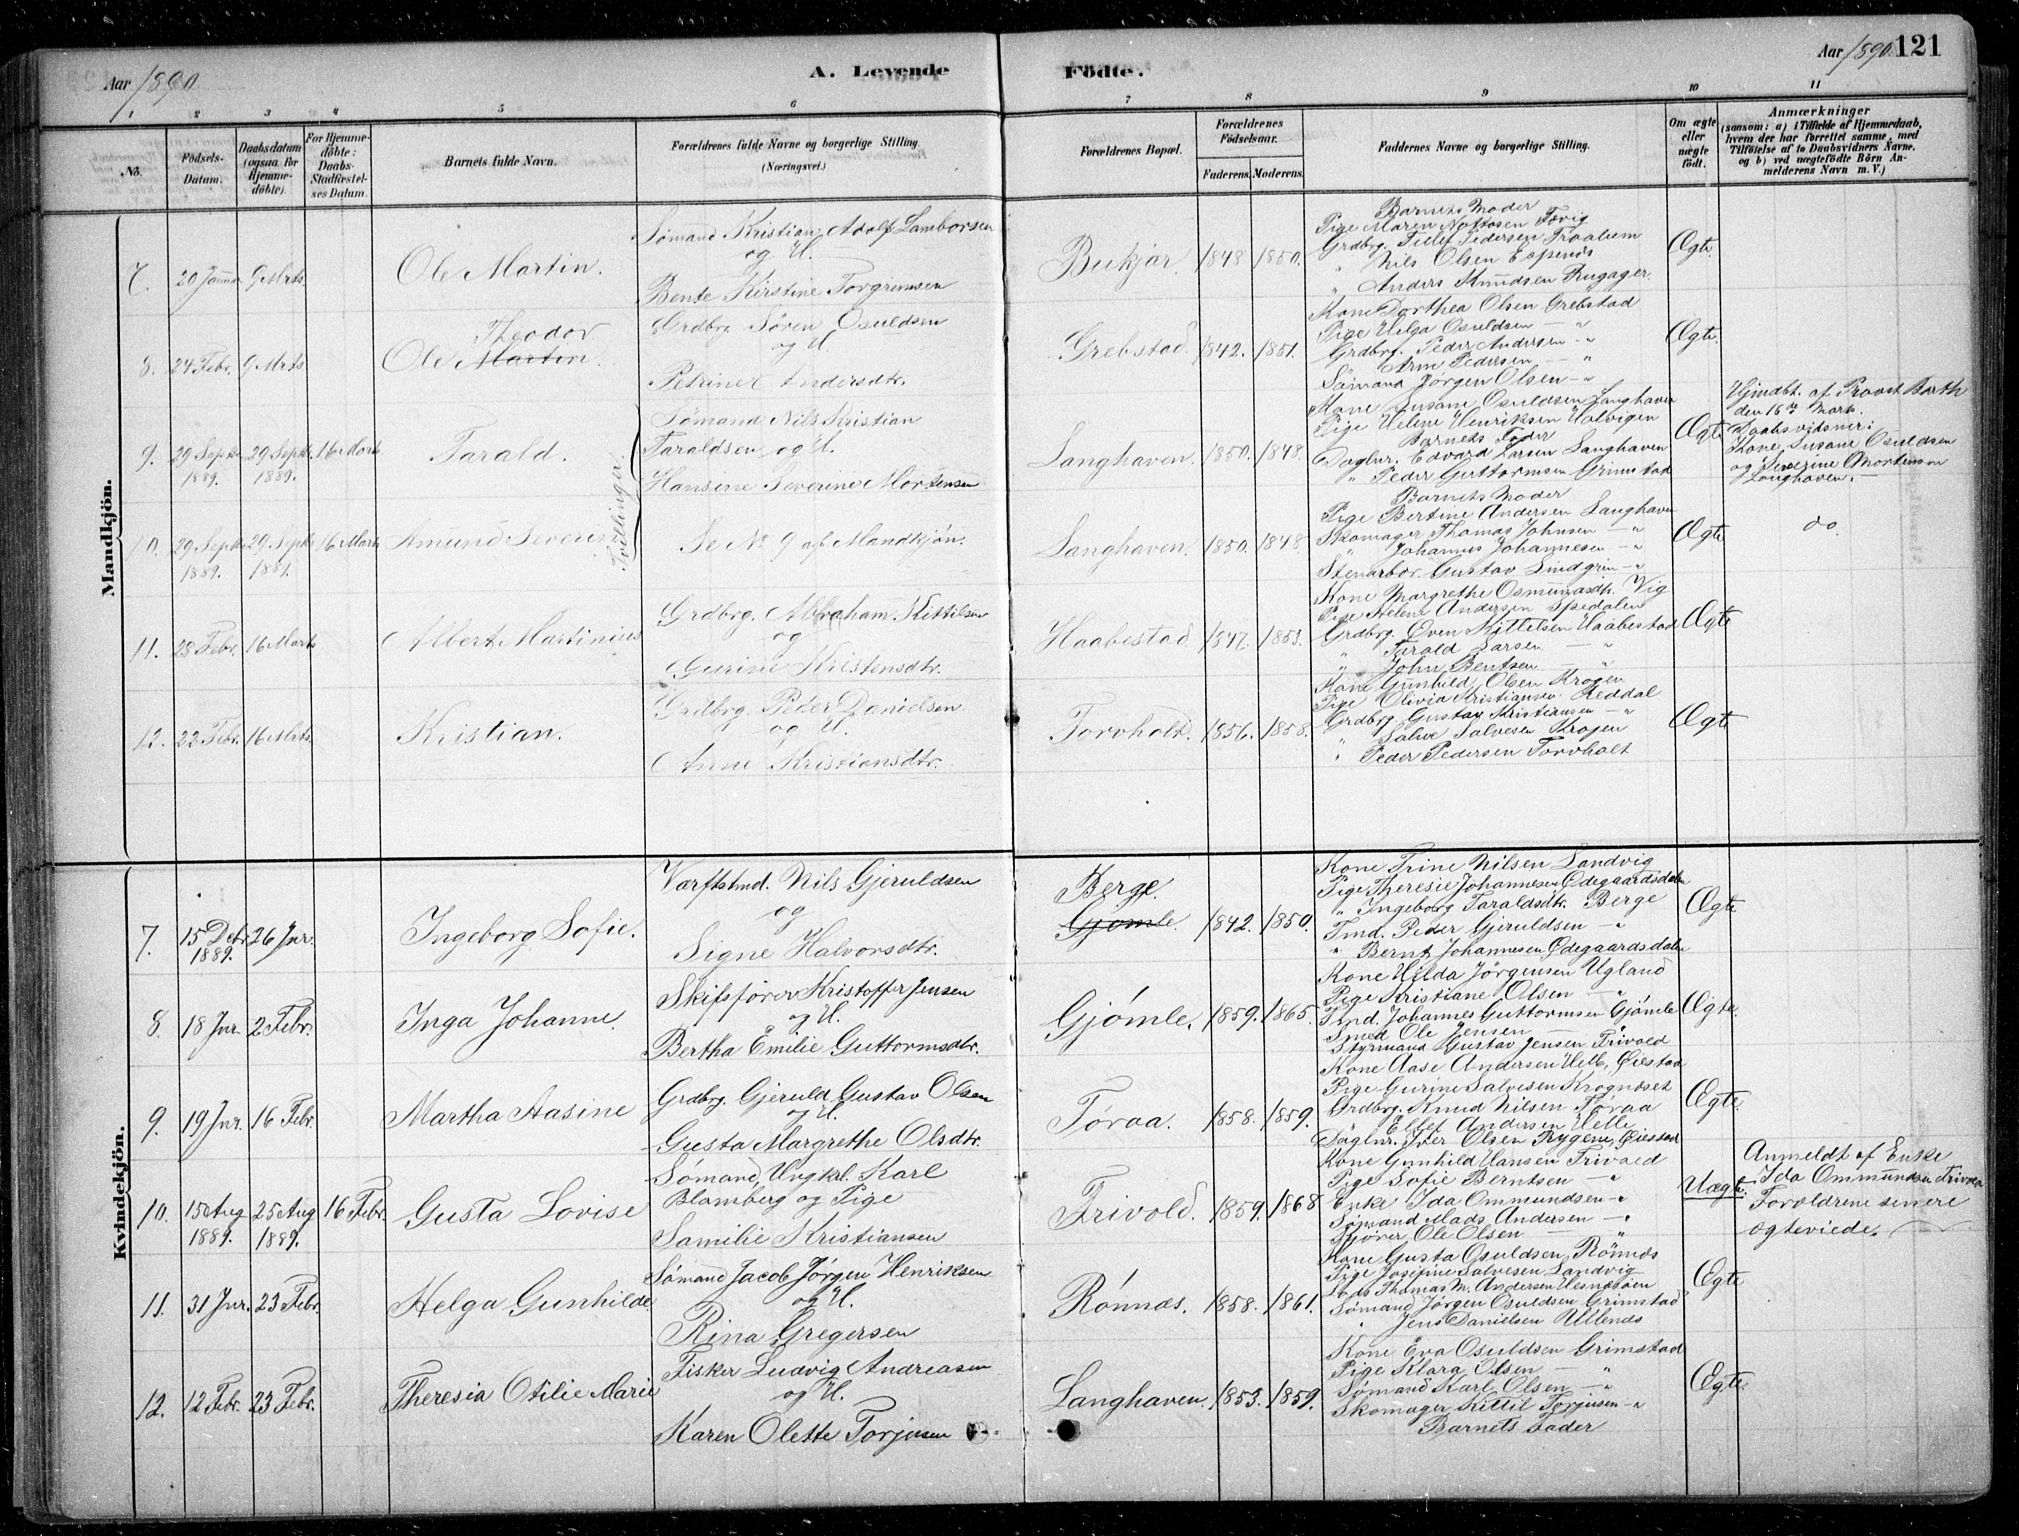 Aar 1890.
A. Levende Födte.
Aar 1890. 121
1 2 3 4 5 6 7 8 9 10 11
No.
Födsels-Datum.
Daabsdatum (ogsaa for Hjemmedöbte).
For Hjemmedöbte: Daabs-Stadfæstelses Datum.
Barnets fulde Navn.
Forældrenes fulde Navne og borgerlige Stilling.
(Næringsvei.)
Forældrenes Bopæl.
Forældrenes Födselsaar.
Faderens. Moderens.
Faddernes Navne og borgerlige Stilling.
Om ægte eller uægte födt.
Anmærkninger
(saasom: a) i Tilfælde af Hjemmedaab, hvem der har forrettet samme, med Tilföielse af to Daabsvidners Navne, og b) ved uægtefödte Börn Anmelderens Navn m. V.)
Mandkjön.
7. 20 Januar 9 Mrts Ole Martin.
Sømand Kristian Adolf Lamborsen
og H.
Bente Kirstine Torgrimsen
Bukjær. 1848 1850.
Barnets Moder
Pige Maren Nottosen Fævig
Grdbrg. Tellef Pedersen Traalum
" Nils Olsen Espenes
" Anders Knudsen Rugager.
Ægte
8. 24 Febr. 9 Mrts Ole Martin. Theodor
Grdbrg. Sören Osuldsen
og H
Petrine Andersdtr.
Grebstad. 1842. 1851.
Kone Dorthea Olsen Grebstad
Pige Helga Osuldsen — "
Grdbrg. Peder Andersen — "
Arne Pedersen — "
Sömand Jørgen Olsen — "
Ægte.
9. 29 Septb. 1889. 29 Septb. 1889. 16 Marts Tarald.
Tvillinger.
Sømand Nils Kristian
Taraldsen og H.
Hansine Severine Mortensen
Langhaven. 1850. 1848.
Kone Susane Osuldsen Langhaven
Pige Helene Henriksen Halvigen
Barnets Fader
Daglnr. Edvard Larsen Langhaven
" Peder Guttormsen Grimstad
Ægte
Hjmdbt. af Provst Barth
den 16de Mark.
Daabsvidner:
Kone Susane Osuldsen
og Severine Mortensen
Langhaven.
10. 29 Septb. 1889. 29 Septb. 1889. 16 Marts Amund Severin
Se No 9 af Mandkjön.
Langhaven. 1850. 1848.
Barnets Moder
Pige Bertine Andersen Langhaven
Skomager Thomas Johnsen — "
" Johannes Johannesen — "
Stenarbdr. Gustav Lindgrin — "
Ægte
do.
11. 28 Febr. 16 Marts Albert Martinius
Grdbrg. Abraham Kittilsen
og
Gurine Kristensdtr.
Haabestad 1847. 1853.
Kone Margrethe Osmundsdt. Vig
Pige Helene Andersen Spedalen
Grdbrg. Even Kittelsen Haabestad
" Tarald Larsen — "
" John Bentsen — "
Ægte
12. 22 Febr. 16 Mrts. Kristian.
Grdbrg. Peder Danielsen
og H.
Anne Kristiansdtr.
Torvholt. 1856. 1858.
Kone Gunhild Olsen Krogen
Pige Olivia Kristiansen Reddal
Grdbrg. Gustav Kristiansen — "
" Salve Salvesen Krogen
" Peder Pedersen Torvholt
Ægte
Kvindekjön.
7. 15 Debr 1889. 26 Jnr. Ingeborg Sofie.
Værftstmd. Nils Gjeruldsen
og
Signe Halvorsdtr.
Berge
Gjömle. 1842. 1850.
Kone Trine Nilsen Sandvig
Pige Theresie Johannesen Ødegaardsdalen
" Ingeborg Taraldsdtr. Berge
Tmd. Peder Gjeruldsen — "
" Bernt Johannesen Ødegaardsdalen
Ægte
8. 18 Jnr. 2 Febr. Inga Johanne.
Skibsfører Kristoffer Jensen
og H.
Bertha Emilie Guttormsdtr.
Gjömle. 1859. 1865.
Kone Hilda Jörgensen Ugland
Pige Kristiane Olsen — "
Tmd. Johannes Guttormsen Gjömle
Smed Ole Jensen — "
Styrmand Gustav Jensen Frivold
Ægte.
9. 19 Jnr. 16 Febr. Martha Aasine
Grdbrg. Gjeruld Gustav Olsen
og H.
Gusta Margrethe Olsdtr.
Töraa. 1858. 1859.
Kone Aase Andersen Helle, Øiestad
Pige Gurine Salvesen Krognæset
Grdbrg. Knud Nilsen Töraa
Ellef Andersen Helle
Daglnr. Iver Olsen Rygene, Øiestad
Ægte.
10. 15 Aug 1889. 25 Aug 1889. 16 Febr. Gusta Lovise
Sømand, Ungkl. Karl
Blomberg og Pige
Samilie Kristiansen
Frivold. 1859. 1868
Kone Gunhild Hansen Frivold
Pige Sofie Berntsen — "
Enke Ida Ommundsen — "
Sømand Mads Andersen — "
Skfører Ole Olsen — "
Uægte.
Anmeldt af Enke
Ida Ommundsen Frivold
Forældrene senere
ægteviede.
11. 31 Jnr. 23 Febr. Helga Gunhilde
Sømand Jacob Jørgen Henriksen
og H.
Rina Gregersen
Rönnæs. 1858. 1861.
Kone Gusta Osuldsen Rönnæs
Pige Josefine Salvesen Sandvig
Lods Thomas M. Andersen Hesnæsöen
Sømand Jørgen Osuldsen Grimstad
" Jens Danielsen Ullenes
Ægte
12. 12 Febr. 23 Febr. Theresia Otilie Marie
Fisker Ludvig Andreasen
og H.
Karen Olette Torjusen
Langhaven. 1853. 1859.
Kone Eva Osuldsen Grimstad
Pige Klara Olsen — "
Sömand Karl Olsen — "
Skomager Kittil Torjusen — "
Barnets Fader
Ægte